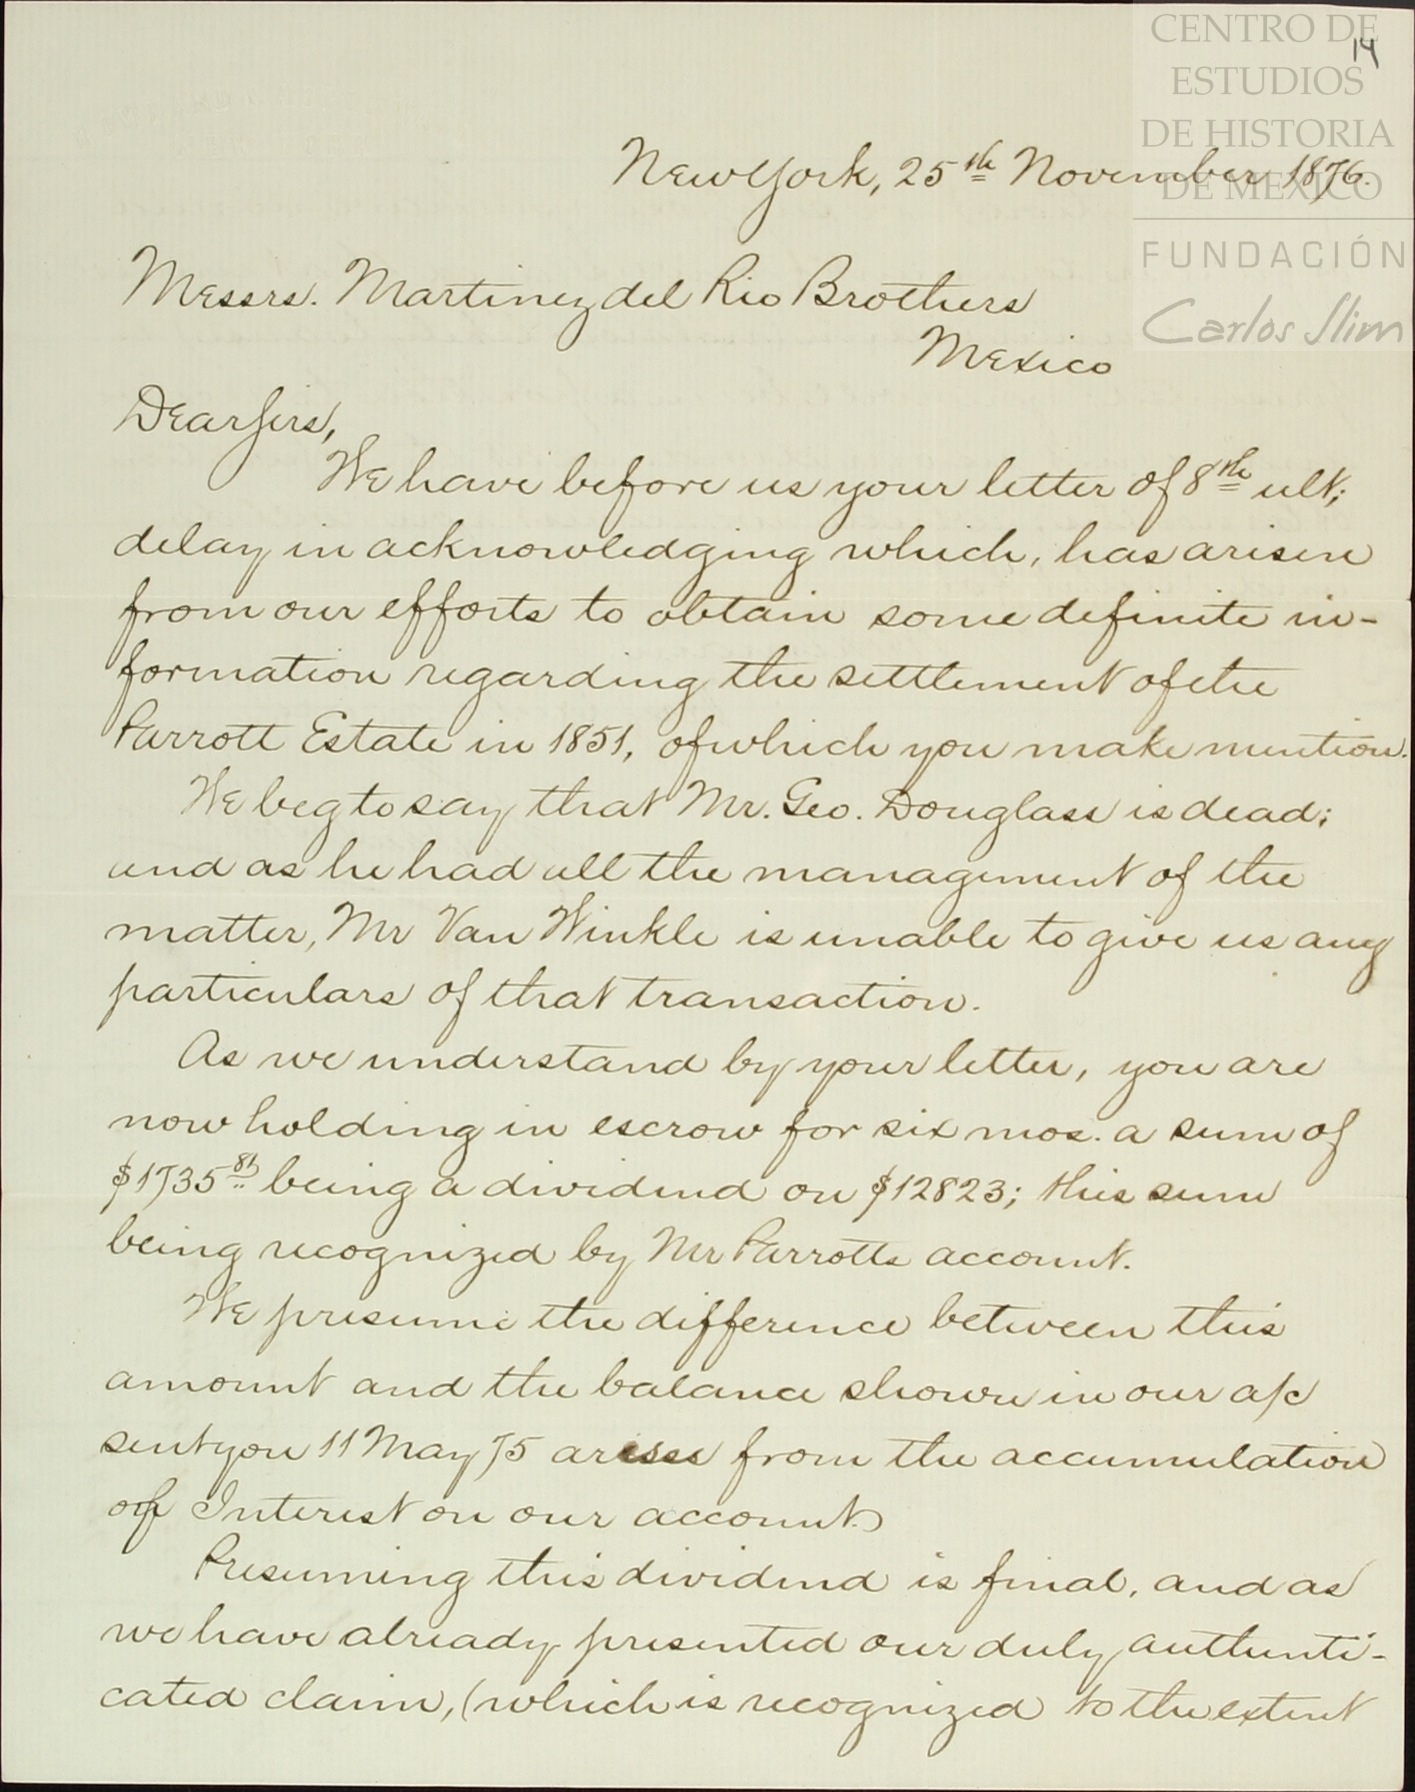 CENTRO DE
ESTUDIOS
DE HISTORIA
DE MEXICO
FUNDACIÓN
Carlos Slim
14
New York, 25th November 1876.
Messrs. Martinez del Rio Brothers
Mexico
Dear Sirs,
We have before us your letter of 8th ult;
delay in acknowledging which, has arisen
from our efforts to obtain some definite in-
formation regarding the settlement of the
Parrott Estate in 1851, of which you make mention.
We beg to say that Mr. Geo. Douglass is dead;
and as he had all the management of the
matter, Mr Van Winkle is unable to give us any
particulars of that transaction.
As we understand by your letter, you are
now holding in escrow for six mos. a sum of
$1735 81 being a dividend on $12823; this sum
being recognized by Mr Parrotts account.
We presume the difference between this
amount and the balance shown in our a/c
sent you 11 May 75 arises from the accumulation
of Interest on our account.
Presuming this dividend is final, and as
we have already presented our duly authenti-
cated claim, (which is recognized to the extent